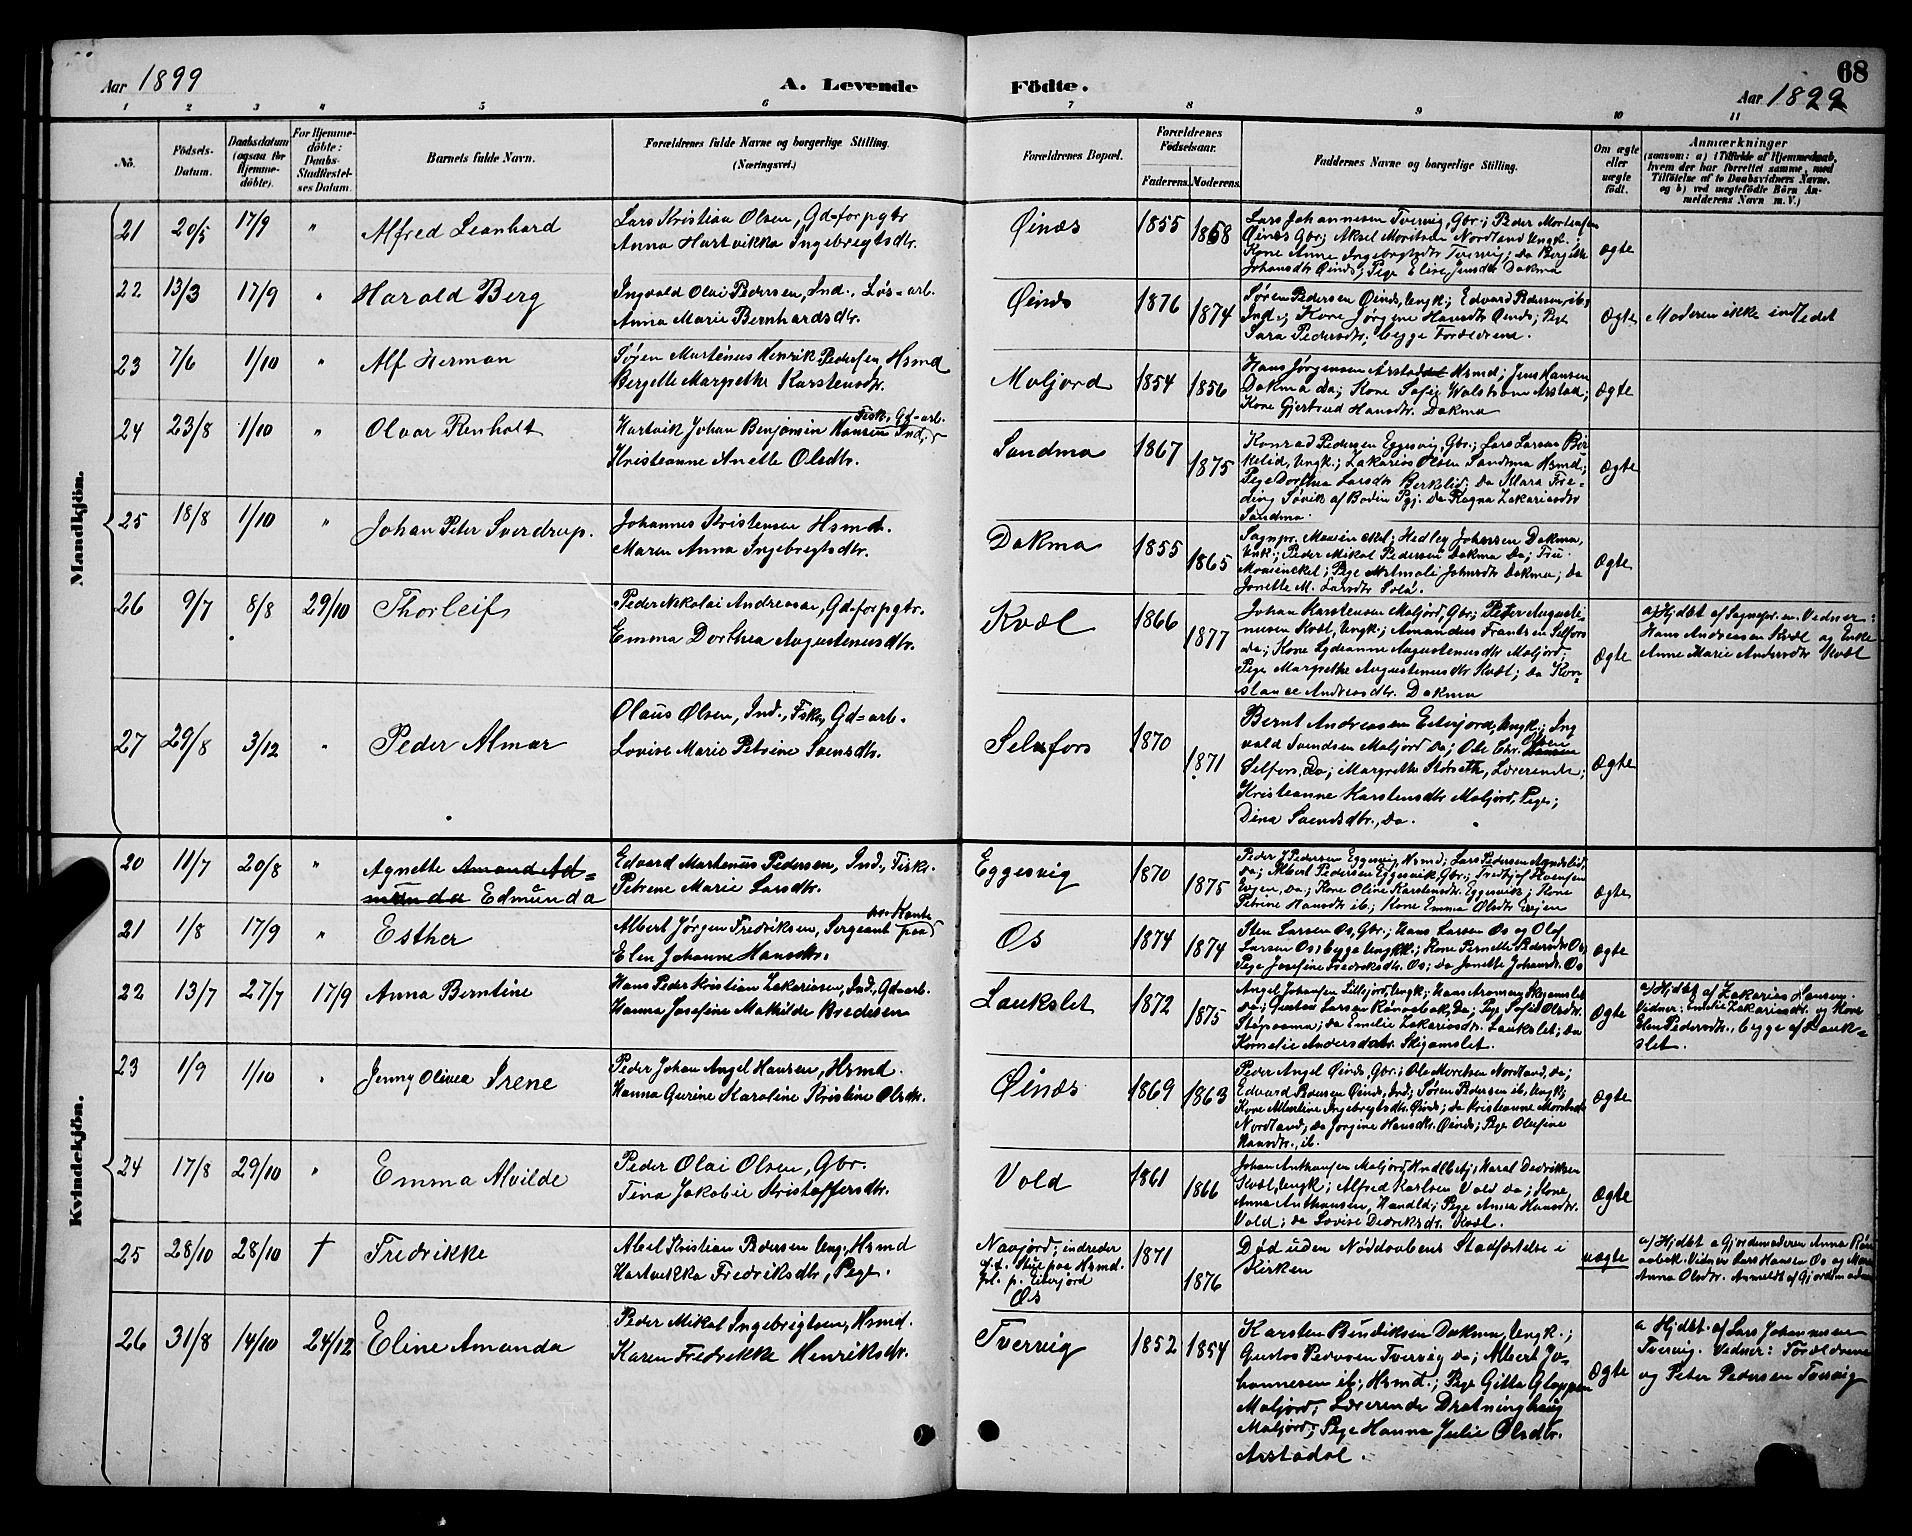 68
Aar 1899
A. Levende
Födte.
Aar 1899
1 2 3 4 5 6 7 8 9 10 11
No.
Födsels-Datum.
Daabsdatum (ogsaa for Hjemme-döbte).
For Hjemme-döbte: Daabs-Stadfæstel-ses Datum.
Barnets fulde Navn.
Forældrenes fulde Navne og borgerlige Stilling. (Næringsvei.)
Forældrenes Bopæl.
Forældrenes Födselsaar.
Faderens. Moderens.
Faddernes Navne og borgerlige Stilling.
Om ægte eller uægte födt.
Anmærkninger
(saasom: a) i Tilfælde af Hjemmedaab, hvem der har forrettet samme, med Tilföielse af to Daabsvidners Navne, og b) ved uægtefödte Börn An-melderens Navn m. V.)
Mandkjön.
21 20/5 17/9 " Alfred Leonhard
Lars Kristian Olsen, Gd=forpgtr
Anna Hartvikka Ingebregtsdtr.
Øinæs 1855 1868
Lars Johannesen Tvervig, Gbr.; Peder Mortensen
Øinæs Gbr; Aksel Moritsen Nordland Ungk.;
Kone Anne Ingebregtsdtr Tvervig; Da Bergitte
Johansdtr Øinæs; Pige Elise Jensdtr Dokmo
Ægte
22 13/3 17/9 " Harald Berg
Ingvald Olai Pedersen, Ind., Løs=arb.
Anna Marie Bernhardsdtr.
Øinæs 1876 1874
Søren Pedersen Øinæs, Ungk.; Edvard Pedersen, ib,
Ind; Kone Jørgine Hansdtr Øinæs; Pige
Sara Pedersdtr; begge Forældrene.
Ægte Moderen ikke indledet
23 7/6 1/10 " Alf Herman
Søren Martinus Henrik Pedersen Hsmd
Bergitte Margrethe Karstensdtr.
Moljord 1854 1856
Hans Jørgensen Arstad Hsmd; Jens Hansen
Dokmo da; Kone Sofie Walstrøm Arstad;
Kone Gjertrud Hansdtr. Dokmo
Ægte
24 23/8 1/10 " Olvar Renholt
Hartvik Johan Benjamin Hansen Ind., Fisk., Gd=arb.
Kristeanne Anette Olsdtr.
Sandmo 1867 1875
Konrad Pedersen Eggesvig, Gbr.; Lars Larsen Bir-
kelid, Ungk.; Zakarias Olsen Sandmo Hsmd;
Pige Dorthea Larsdtr Berkelid; da Mara Fre-
ding Søvik af Bodin Pgj.; Da Ragna Zakariasdtr
Sandmo.
Ægte
25 18/8 1/10 " Johan Peter Sverdrup.
Johannes Kristensen Hsmd.
Maren Anna Ingebregtsdtr.
Dokmo 1855 1865
Sognpr. Moeinckel; Hedley Johnsen Dokmo,
Ungk.; Peder Mikal Pedersen Dokmo Da; Fru
Moeinckel; Pige Johnsdtr Dokmo; Da
Jonette M. Larsdtr
Ægte
26 9/7 8/8 29/10 Thorleif
Peder Nikolai Andreasen, Gd=forpgtr.
Emma Dorthea Augustenusdtr.
Kvæl 1866 1877
Johan Karstensen Moljord, Gbr.; Peter Augusti-
nusen Kvæl, Ungk.; Amandus Frantsen Selfors
Da; Kone Lydeanne Augustenusdtr Moljord;
Pige Margrethe Augustenusdtr Kvæl; Da Kon-
stance Andreasdtr. Dokmo
Ægte
a) Hjdbt af Sognepr. en. Vidner:
Hans Andreasen Kvæl og Enke
Anne Marie Andersdtr Kvæl
27 29/8 3/12 " Peder Almar
Olaus Olsen, Ind., Fsker, Gd=arb.
Lovise Marie Petrine Svensdtr.
Selufors 1870 1871
Bernt Andreassen Eiterjord, Ungk.; Ing
vald Svendsen Moljord Da; Ole Chr. Olsen
Selfors, Da; Margrethe Storseth, Lærerinde;
Kristeanne Karstensdtr Moljord, Pige;
Dina Svendsdtr., Da.
Ægte
Kvindekjön.
20 11/7 20/8 " Agnette Amanda Ad=
munda Edmunda
Edvard Martenus Pedersen, Ind., Fisker
Petrine Marie Larsdtr.
Eggesvig 1870 1875
Peder J Pedersen Eggesvig, Hsmd; Lars Pedersen Agnæslid,
Da; Albert Pedersen Eggesvik, Gbr; Fredthj. Hvensen
Evjen, Da; Kone Oline Karstensdtr. Eggesvik; Kone
Petrine Hansdtr ib; Kone Emma Olsdtr Evjen
Ægte
21 1/8 17/9 " Esther
Albert Jørgen Fredriksen, Sergeant paa
Elen Johanne Hansdtr.
Os 1874 1874
Sten Larsen Os, Gbr.; Hans Larsen Os og Olof
Larsen Os, begge Ungkl.; Kone Pernelle Pedersdtr Os,
Pige Josefine Fredriksdtr. Os; Da Jonette Johansdtr. Os
Ægte
22 13/7 27/7 17/9 Anna Berntine
Hans Peder Kristian Zakariasen, Ind., Gd=arb.
Hanna Josefine Mathilde Bredesen
Laukslet 1872 1875
Angel Johansen Lilljord, Ungk.; Hans Skjamslet
Da; Gustav Larsen Rønaabek, Da; Pige Sofie Olsdtr.
Støpoama; Da Emilie Zakariasdtr. Laukslet; Da
Kornelie Andersdatr. Skjamslet.
Ægte
a) Hjdbt af Zakarias Hansen.
Vidner: Emilie Zakariasdtr. og Kone
Elen Pedersdtr., begge af Lauk-
slet.
23 1/9 1/10 " Jenny Olivea Irene
Peder Johan Angel Hansen, Hsmd.
Hanna Gurine Karoline Kristine Olsdtr.
Øinæs 1869 1863
Peder Angel Øinæs, Gbr.; Ole Moritsen Nordland, Da;
Edvard Pedersen Øinæs, Ind; Søren Pedersen ib, Ungk;
Kone Albertine Ingebregtsdtr. Øinæs; Da Kristeanne
Nordland; Da Jørgine Hansdtr. Øinæs; Pige Olufine
Hansdtr., ib.
Ægte
24 17/8 29/10 " Emma Alvilde
Peder Olai Olsen, Gbr.
Tina Jakobie Kristoffersdtr.
Vold 1861 1866
Johan Anthonsen Moljord, Hndlbetj; Haral Dedriksen
Kvæl, Ungk; Alfred Karlsen Vold Da; Kone
Anna Anthonsen, Handld; Pige Anna Hansdtr.
Vold; Da Lovise Dedriksdtr. Kvæl.
Ægte
25 28/10 28/10 † Fredrikke
Abel Kristian Pedersen Ung., Hsmd
Hartvikka Fredriksdtr., Pige.
Navjord; indreder
d.f. Stue paa Hsmd.
pl. p. Eiterjord
Os
1871 1876
Død uden Nøddaabens Stadfæstelse i
Kirken
uægte
a) Hjdbt a Gjordemoderen Anna Røn
aabek. Vidner Lars Hansen Os og Mari
Anna Olsdtr. Anmeldt af Gjordemoderen
26 31/8 14/10 24/12 Eline Amanda
Peder Mikal Ingebrigtsen, Hsmd.
Karen Fredrikke Henriksdtr.
Tvervig 1852 1854
Karsten Bendiksen Dokmo, Ungk.;
Gustov Pedersen Tvervig Da; Albert Jo-
hannesen ib., Hsmd.; Pige Gitta Gloppen
Moljord; Lærerinde Drotninghaug
Moljord; Pige Hanna Julie Olsdtr.
Arstadal.
Ægte
a Hjdbt. af Lars Johannesen
Tvervig. Vidner: Forældrene
og Peter Pedersen Tvervig